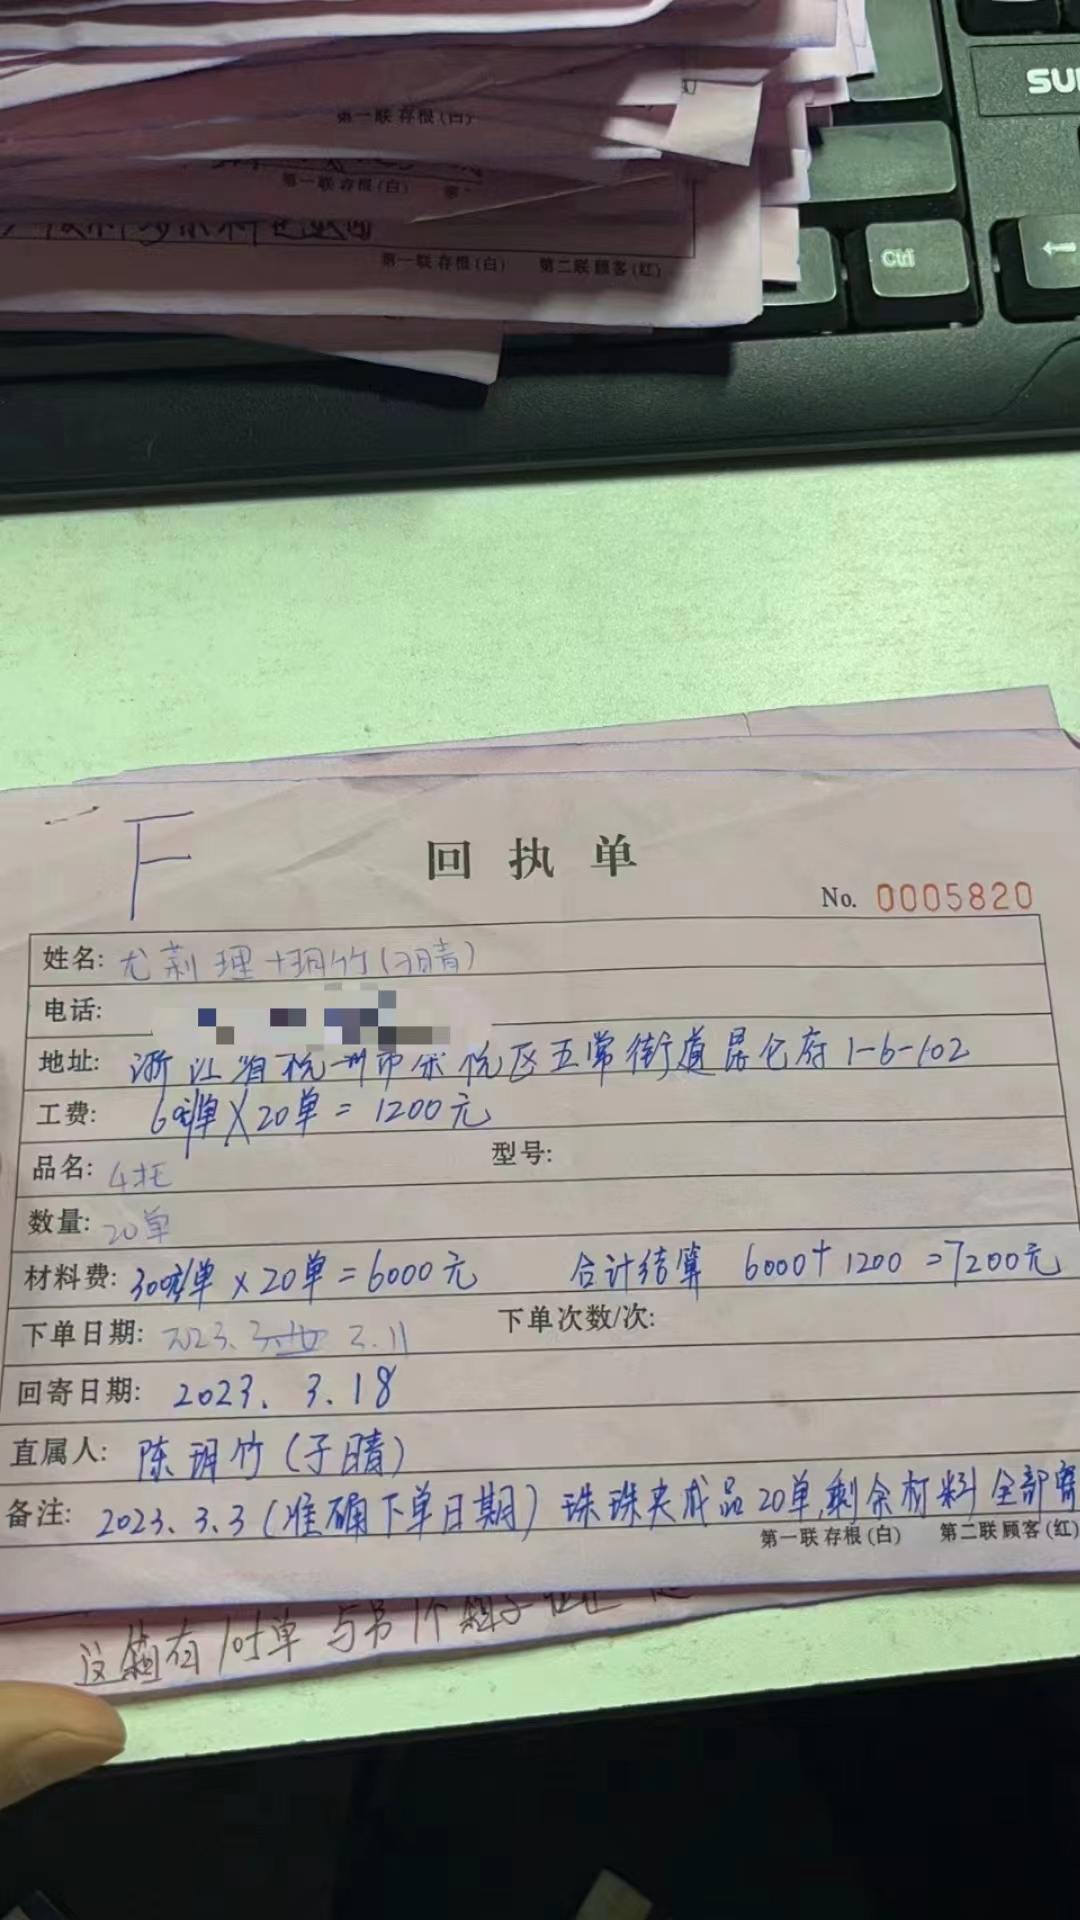 SU
Ctrl
第一联 存根(白)
第一联 存根(白) 第
第一联 存根(白) 第二联 顾客(红)
F
回执单
No. 0005820
姓名: 尤莉 理+玥竹(子晴)
电话:
地址: 浙江省杭州市余杭区五常街道昆仑府1-6-102
工费: 60元/单×20单=1200元
品名: 4托 型号:
数量: 20单
材料费: 300元/单×20单=6000元 合计结算 6000+1200=7200元
下单日期: 2023.3 3.11 下单次数/次:
回寄日期: 2023.3.18
直属人: 陈玥竹(子晴)
备注: 2023.3.3(准确下单日期)珠珠夹成品20单,剩余材料全部寄
第一联 存根(白) 第二联 顾客(红)
这组有 单与另1个组